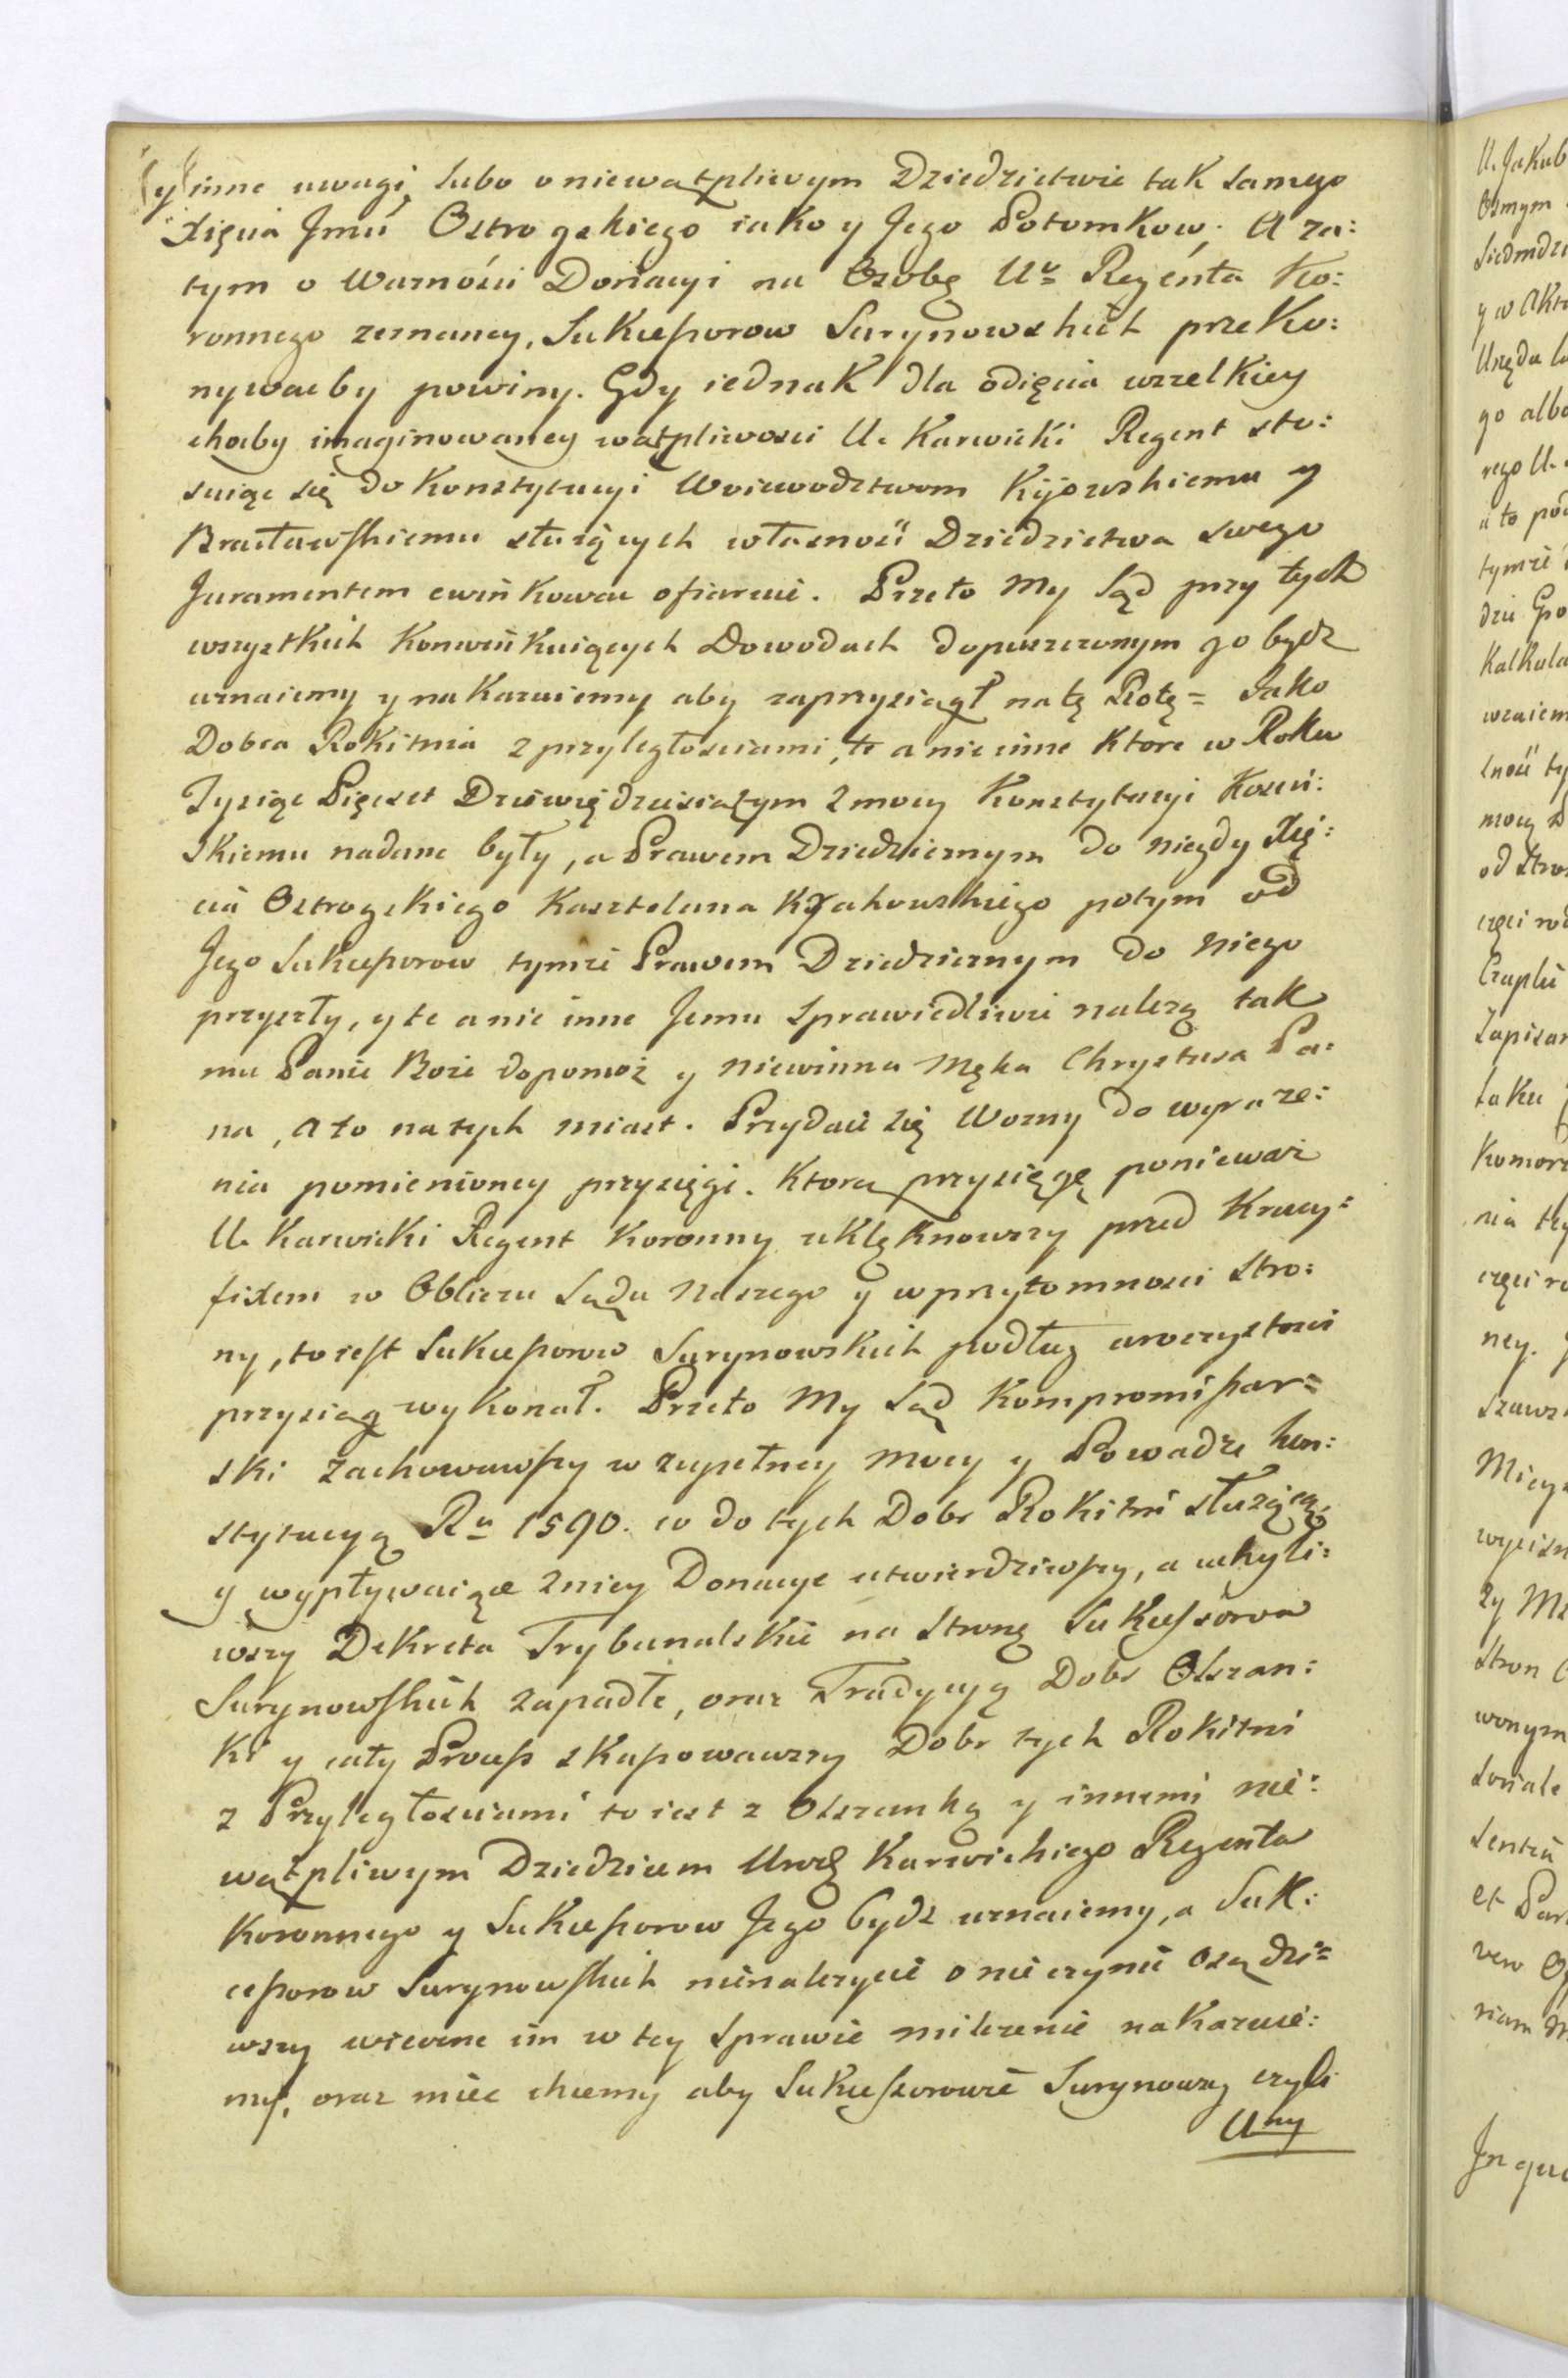 y inne uwagi, lubo o niewątpliwym Dziedzictwie tak samego
Xięcia Jmci Ostrogskiego iako y Jego Potomkow; A za:
tym o Warności Donacyi na Osobę Uo Regenta Ko:
ronnego zeznaney, Sukcessorow Surynowskich przeko:
nywać by powiny. Gdy iednak dla odięcia wszelkiey
choćby imaginowaney wątpliwosci U. Karwicki Regent sto:
suiąc się do Konstytucyi Woiewodztwom Kijowskiemu y
Bracławskiemu służących własność Dziedzictwa swego
Juramentem ewinkować ofiaruie. Przeto My Sąd przy tych
wszystkich Konwinkuiących Dowodach dopuszczonym go bydz
uznaiemy y nakazuiemy aby zaprzysiągł na tę Rotę = Jako
Dobra Rokitnia z przyległosciami, te a nie inne ktore w Roku
Tysiąc Pięcset Dziewiędziesiątym z mocy Konstytucyi Kosiń:
skiemu nadane były, a Prawem Dziedzicznym do niegdy Xię:
cia Ostrogskiego Kasztelana Krakowskiego potym od
Jego Sukcessorow tymże Prawem Dziedzicznym do niego
przyszły, y te a nie inne Jemu sprawiedliwie należą tak
mu Panie Boże dopomoż y niewinna Męka Chrystusa Pa:
na, a to natych miast. Przydaie się Wozny do wyraże:
nia pomienioney przysięgi. Ktorą przysięgę ponieważ
U. Karwicki Regent Koronny uklęknowszy przed Krucy:
fixem w Obliczu Sądu Naszego y w przytomnosci Stro:
ny, to iest Sukcessorow Surynowskich podług uroczystosci
przysiąg wykonał. Przeto My Sąd Kompromissar:
ski zachowawszy w zupełney mocy y Powadze kon:
stytucyą Ru 1590. co do tych Dobr Rokitni służącą,
y wypływaiące z niey Donacye utwierdziwszy, a uchyli:
wszy Dekreta Trybunalskie na stronę Sukcessorow
Surynowskich zapadłe, oraz Tradycyą Dobr Olszan:
ki y cały Process skassowawszy Dobr tych Rokitni
z Przyległosciami to iest z Olszanką y innemi nie:
wątpliwym Dziedzicem Urodz Karwickiego Regenta
Koronnego y Sukcessorow Jego bydz uznaiemy, a Suk:
cessorow Surynowskich nienależycie o nie czynić osądzi:
wszy wieczne im w tey sprawie milczenie nakazuie:
my, oraz miec chcemy aby Sukcessorowie Surynowscy czyli
Uny